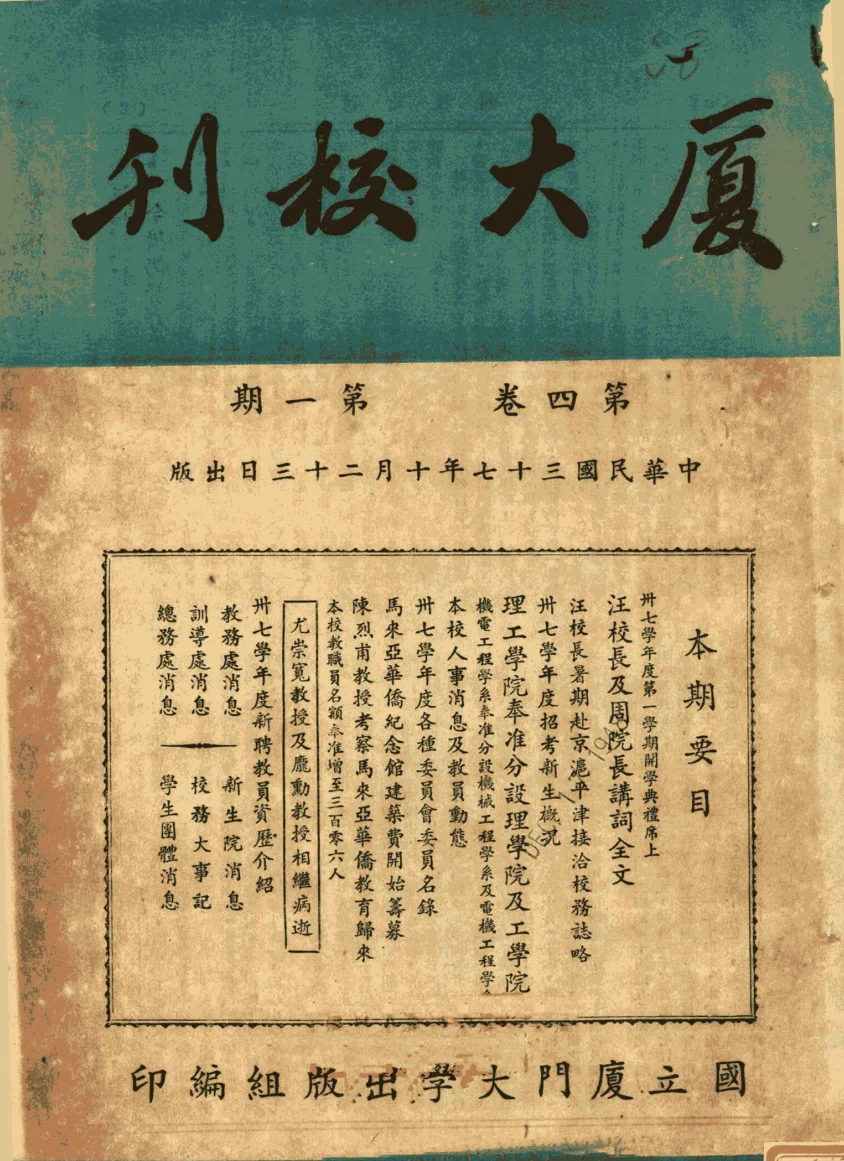 廈大校刊
第四卷 第一期
中華民國三十七年十月二十三日出版
本期要目
卅七學年度第一學期開學典禮席上
汪校長及周院長講詞全文
汪校長暑期赴京滬平津接洽校務誌略
卅七學年度招考新生概況
理工學院奉准分設理學院及工學院
機電工程學系奉准分設機械工程學系及電機工程學
本校人事消息及教員動態
卅七學年度各種委員會委員名錄
馬來亞華僑紀念館建築費開始籌募
陳烈甫教授考察馬來亞華僑教育歸來
本校教職員名額奉准增至三百零六人
尤崇寬教授及龐勳教授相繼病逝
卅七學年度新聘教員資歷介紹
教務處消息 新生院消息
訓導處消息 校務大事記
總務處消息 學生團體消息
國立廈門大學出版組編印